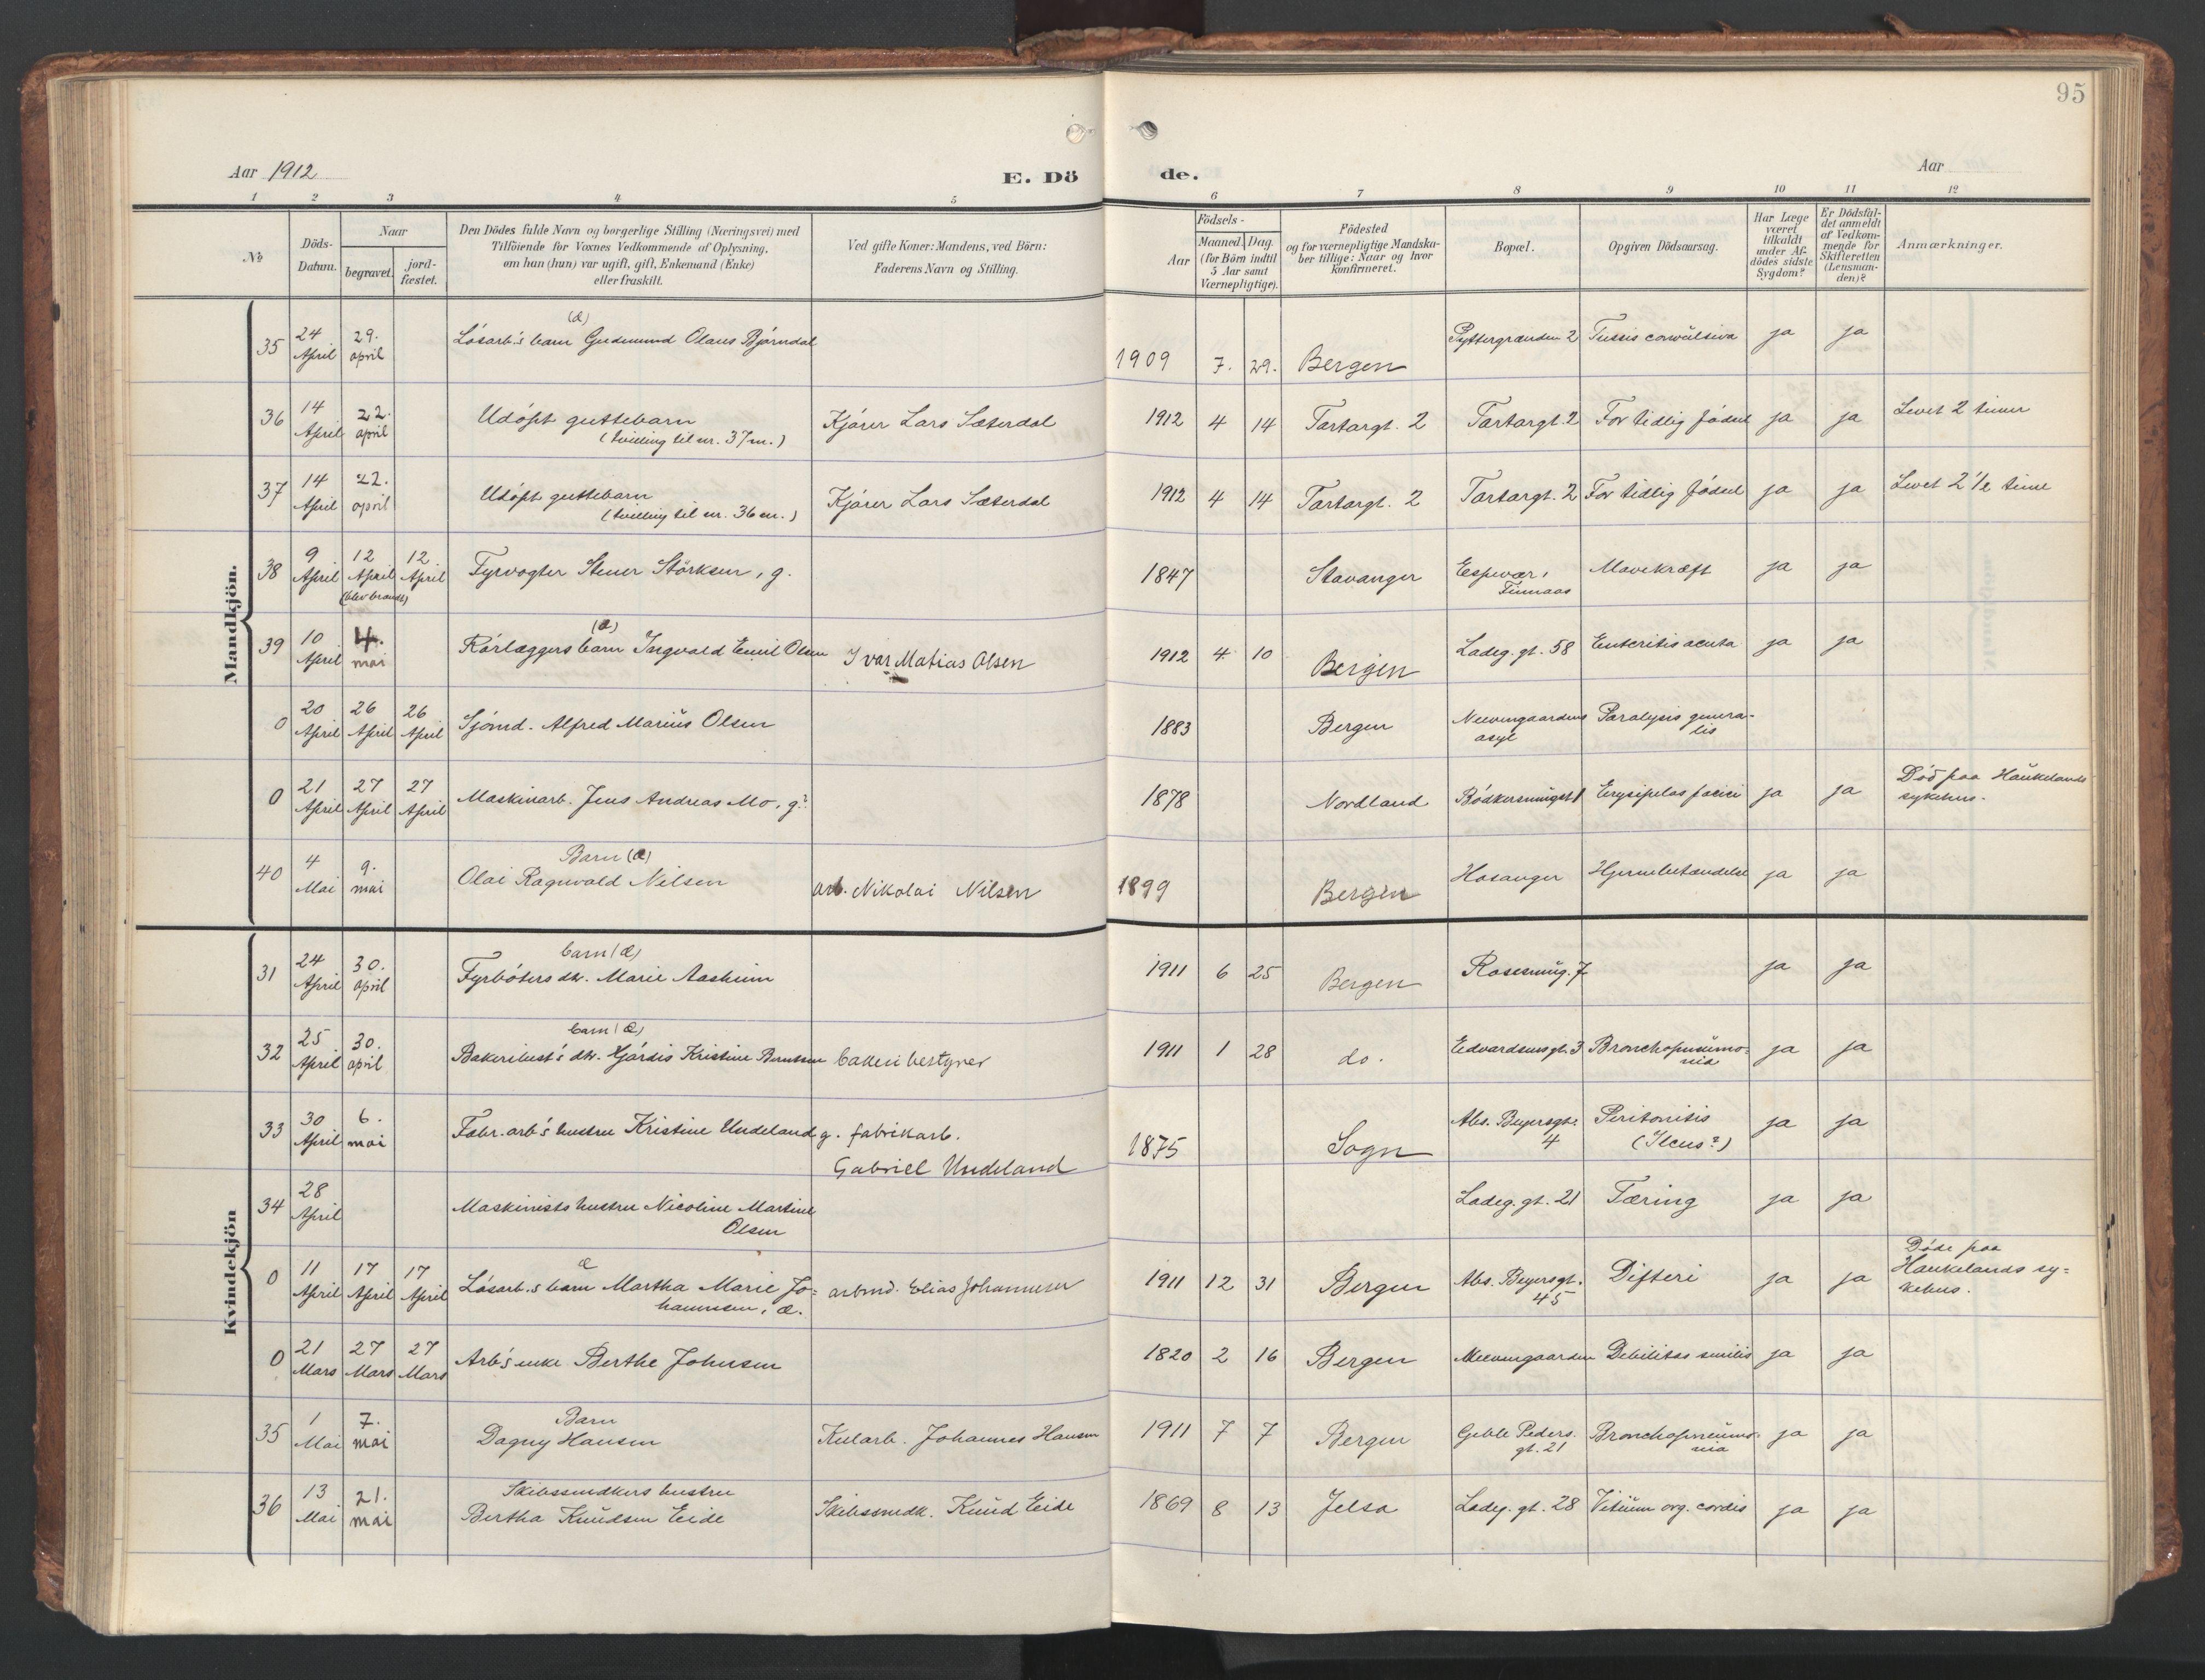 95
Aar 1912
E. Dö
de.
Aar
1 2 3 4 5 6 7 8 9 10 11 12
No
Döds-Datum.
Naar
begravet.
jord-fæstet.
Den Dödes fulde Navn og borgerlige Stilling (Næringsvei) med
Tilföiende for Voxnes Vedkommende af Oplysning,
om han (hun) var ugift, gift, Enkemand (Enke)
eller fraskilt.
Ved gifte Koner: Mandens, ved Börn:
Faderens Navn og Stilling.
Födsels-
Aar
Maaned. Dag.
(for Börn indtil
5 Aar samt
Værnepligtige).
Födested
og for værnepligtige Mandska-
ber tillige: Naar og hvor
konfirmeret.
Bopæl.
Opgiven Dödsaarsag.
Har Læge
været
tilkaldt
under Af-
dödes sidste
Sygdom?
Er Dödsfal-
det anmeldt
af Vedkom-
mende for
Skifteretten
(Lensman-
den)?
Anmærkninger.
Mandkjön.
35 24 April 29. april Lösarb.'s barn (æ) Gudmund Olaus Bjørndal 1909 7. 29. Bergen Pyttergrænden 2 Tussis convulsiva ja ja
36 14 April 22. april Udöpt guttebarn
(tvilling til nr. 37 m.) Kjörer Lars Sæterdal 1912 4 14 Tartargt. 2 Tartargt. 2 For tidlig födsel ja ja Levet 2 timer
37 14 April 22. april Udöpt guttebarn
(tvilling til nr. 36 m.) Kjörer Lars Sæterdal 1912 4 14 Tartargt. 2 Tartargt. 2 For tidlig födsel ja ja Levet 2 1/2 time
38 9 April 12 April 12 April (blev brændt) Fyrvogter Stener Störksen, g. 1847 Stavanger Espevær, Finnaas Mavekræft ja ja
39 10 April 4. mai Rörlæggers barn (æ) Ingvald Emil Olsen Ivar Matias Olsen 1912 4 10 Bergen Ladeg. gt. 58 Enteritis acuta ja ja
0 20 April 26 April 26 April Sjömd. Alfred Marius Olsen 1883 Bergen Neevengaardens asyl Paralysis generalis
0 21 April 27 April 27 April Maskinarb. Jens Andreas Mo, g? 1878 Nordland Bödkersmugst 1 Erysipelas faciei ja ja Död paa Haukelands
sykehus.
40 4 Mai 9. mai Barn (æ)
Olai Ragnvald Nilsen arb. Nikolai Nilsen 1899 Bergen Hosanger Hjernebetændelse ja ja
Kvindekjön
31 24 April 30. april barn (æ)
Fyrböters dtr. Marie Aasheim 1911 6 25 Bergen Rosesmug. 7 ja ja
32 25 April 30. april barn (æ)
Bakeribest's dtr. Hjördis Kristine Berntsen bakeribestyrer 1911 1 28 do. Edvardsensgt. 3 Bronchopneumo-
nia ja ja
33 30 April 6. mai Fabr. arb's hustru Kristine Undeland g. fabrikarb.
Gabriel Undeland 1875 Sogn Abs. Beyersgt.
4 Peritonitis
(Ileus?) ja ja
34 28 April Maskinists hustru Nicoline Martine
Olsen Ladeg. gt. 21 Tæring ja ja
0 11 April 17 April 17 April Lösarb.s barn æ Martha Marie Jo-
hannesen, æ. arbmd. Elias Johannesen 1911 12 31 Bergen Abs. Beyersgt.
45 Difteri ja ja Döde paa
Haukelands sy-
kehus.
0 21 Mars 27 Mars 27 Mars Arb's enke Berthe Johnsen 1820 2 16 Bergen Neevengaarden Debilitas senilis ja ja
35 1 Mai 7. mai Barn
Dagny Hansen Kularb. Johannes Hansen 1911 7 7 Bergen Geble Peders.
gt. 21 Bronchopneumo-
nia ja ja
36 13 Mai 21. mai Skibssmedkers hustru
Bertha Knudsen Eide Skibssnedk. Knud Eide 1869 8 13 Jelsa Ladeg. gt. 28 Vitium org. cordis ja ja